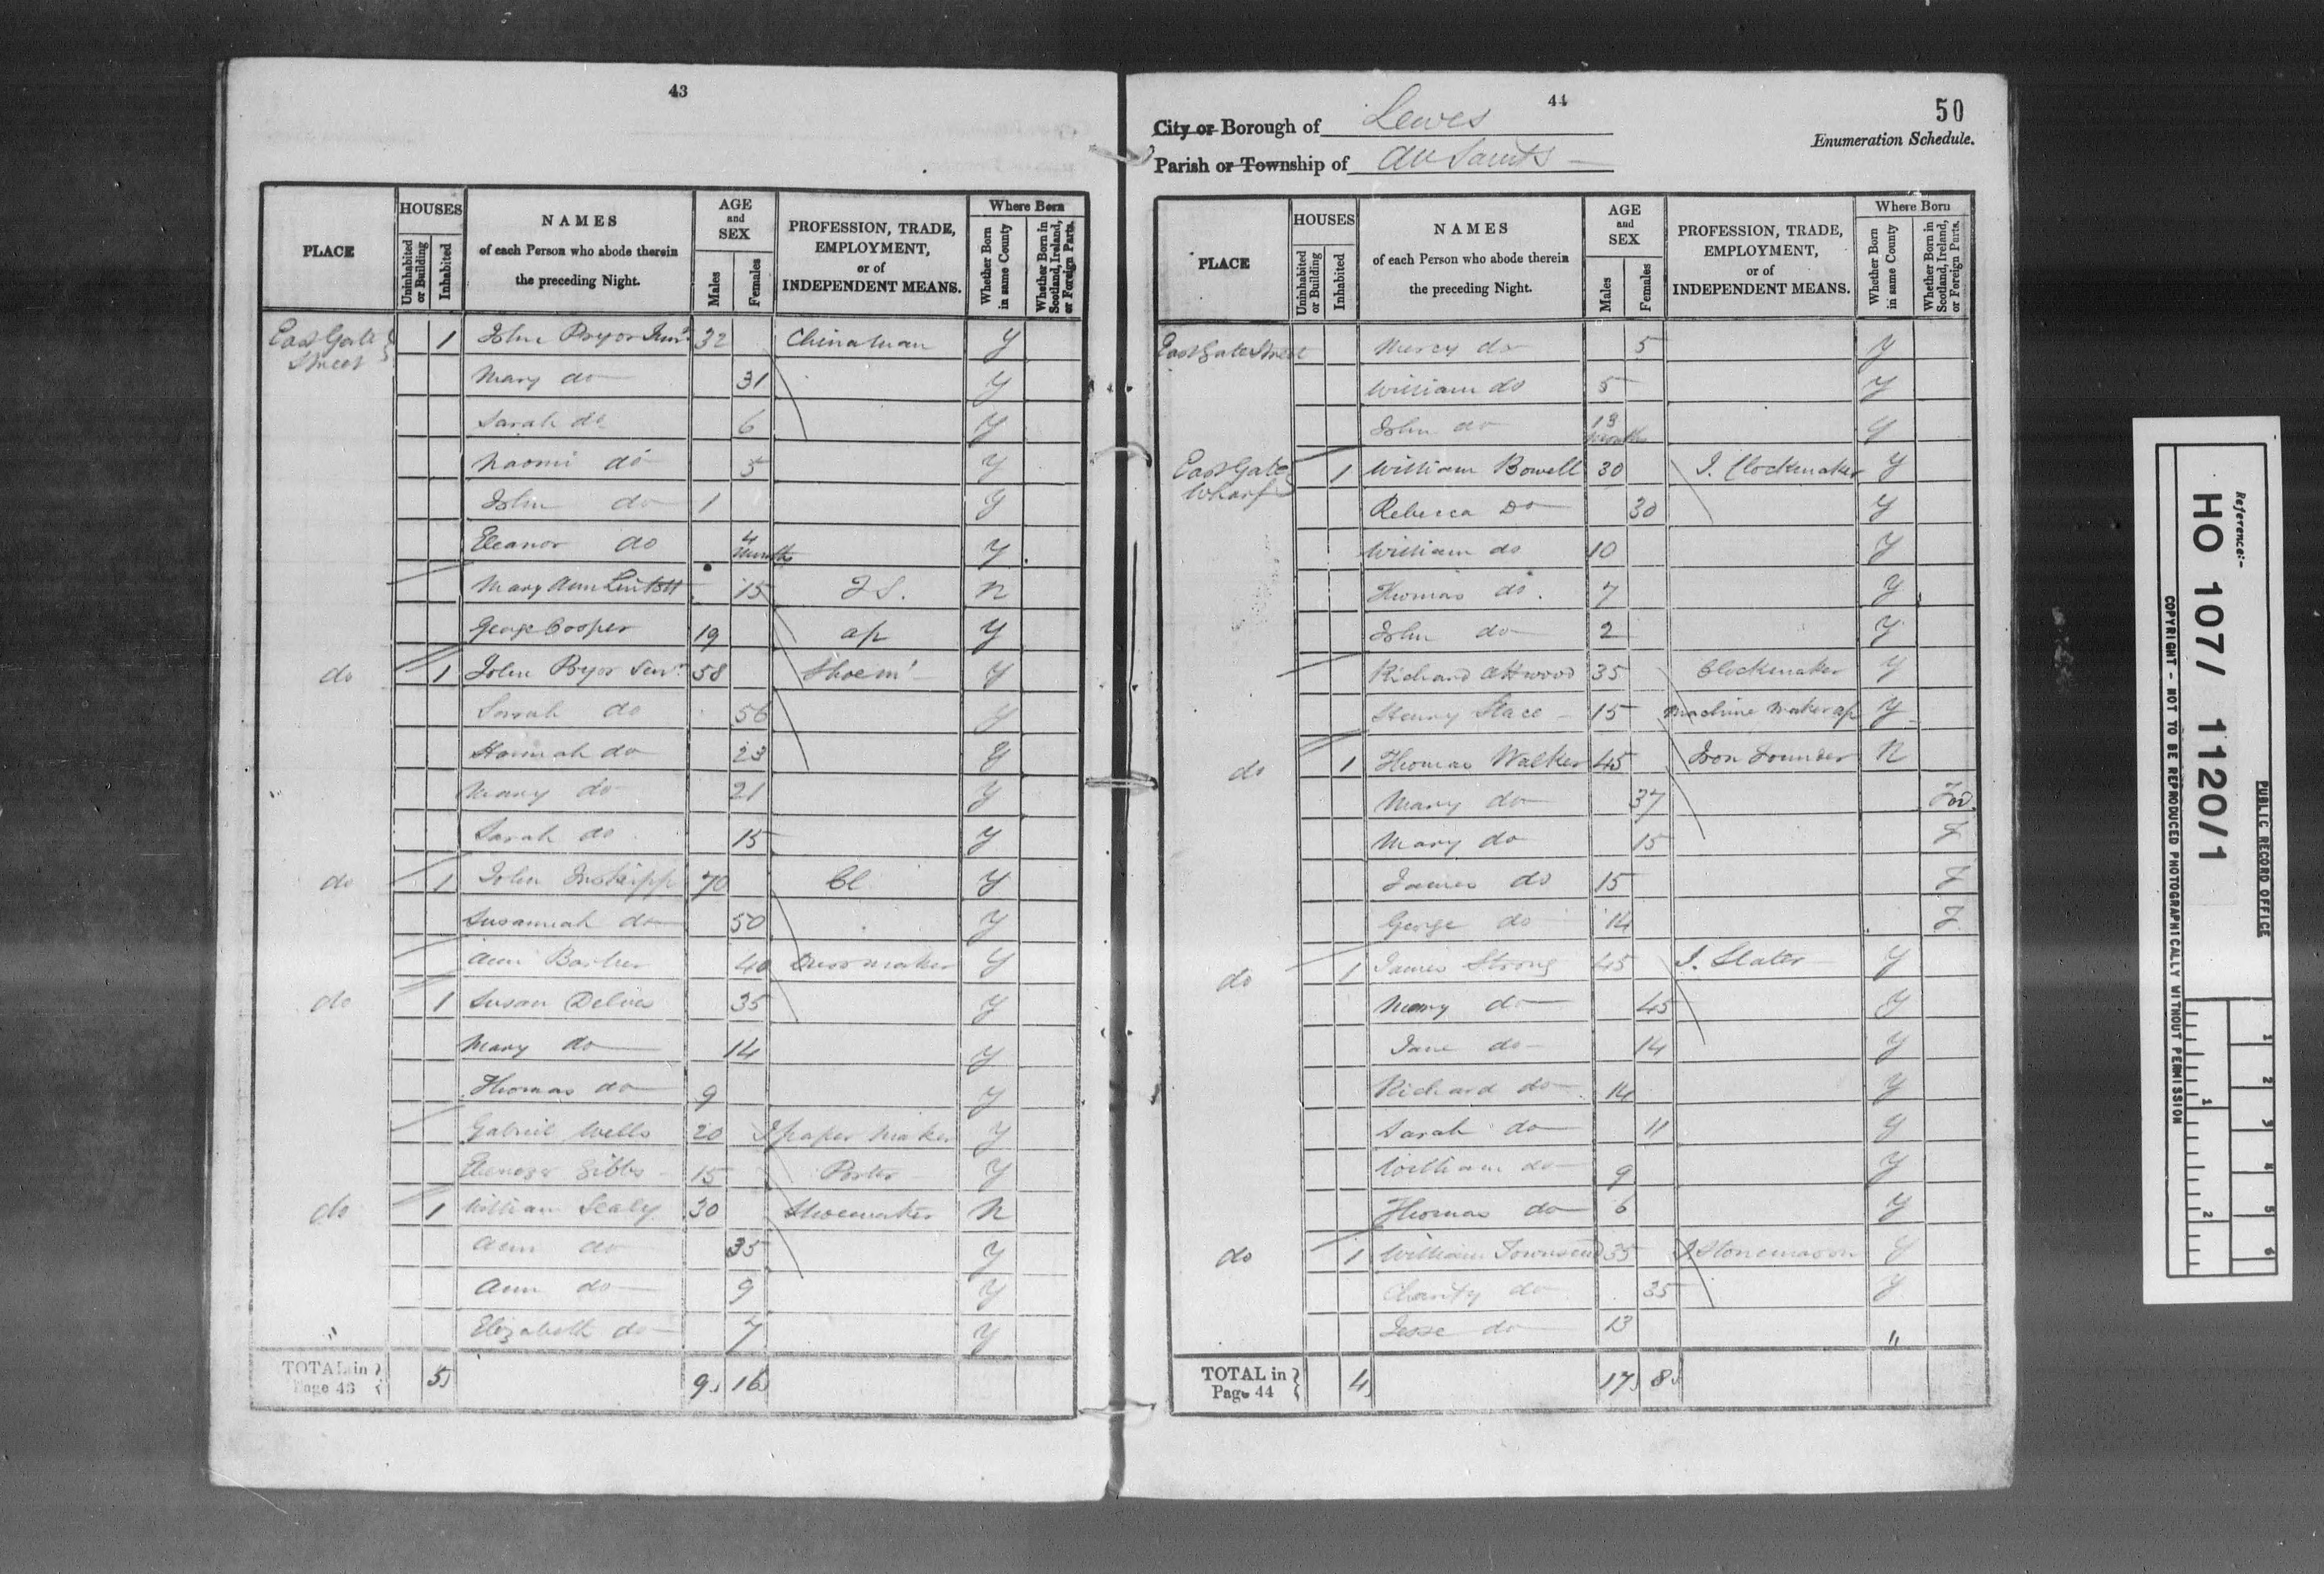 43
PLACE
HOUSES
Uninhabited or Building
Inhabited
NAMES
of each Person who abode therein
the preceding Night.
AGE
and
SEX
Males
Females
PROFESSION, TRADE,
EMPLOYMENT,
or of
INDEPENDENT MEANS.
Where Born
Whether Born in same County
Whether Born in Scotland, Ireland, or Foreign Parts.
East Gate Street 1 John Pryor Junr 32 Chinaman Y
Mary do 31 Y
Sarah do 6 Y
Naomi do 5 Y
John do 1 Y
Eleanor do 4 months Y
Mary Ann Lintott 15 F.S. N
George Cooper 19 ap Y
do 1 John Pryor Senr 58 Shoem Y
Sarah do 56 Y
Hannah do 23 Y
Mary do 21 Y
Sarah do 15 Y
do 1 John Inskipp 70 Cl Y
Susannah do 50 Y
Ann Barber 40 Dressmaker Y
do 1 Susan Delves 35 Y
Mary do 14 Y
Thomas do 9 Y
Gabriel Wells 20 J paper Maker Y
Ebenezer Gibbs 15 Porter Y
do 1 William Sealy 30 Shoemaker N
Ann do 35 Y
Ann do 9 Y
Elizabeth do 7 Y
TOTAL in Page 43 5 9 16
44
50
City or Borough of Lewes
Enumeration Schedule.
Parish or Township of All Saints
PLACE
HOUSES
Uninhabited or Building
Inhabited
NAMES
of each Person who abode therein
the preceding Night.
AGE
and
SEX
Males
Females
PROFESSION, TRADE,
EMPLOYMENT,
or of
INDEPENDENT MEANS.
Where Born
Whether Born in same County
Whether Born in Scotland, Ireland, or Foreign Parts.
East Gate Street Mercy do 5 Y
William do 5 Y
John do 13 months Y
East Gate Wharf 1 William Bowell 30 J. Clockmaker Y
Rebecca Do 30 Y
William do 10 Y
Thomas do 7 Y
John do 2 Y
Richard Attwood 35 Clockmaker Y
Henry Stace 15 Machine Maker ap Y
do 1 Thomas Walker 45 Iron Founder N
Mary do 37
Mary do 15 F
James do 15 F
George do 14 F
do 1 James Strong 45 J. Slater Y
Mary do 45 Y
Jane do 14 Y
Richard do 14 Y
Sarah do 11 Y
William do 9 Y
Thomas do 6 Y
do 1 William Townsend 35 J Stonemason Y
Charity do 35 Y
Jesse do 13 "
TOTAL in Page 44 4 17 8
Reference:-
HO 107/ 1120/1
PUBLIC RECORD OFFICE
COPYRIGHT - NOT TO BE REPRODUCED PHOTOGRAPHICALLY WITHOUT PERMISSION
1 2 3 4 5 6
1 2